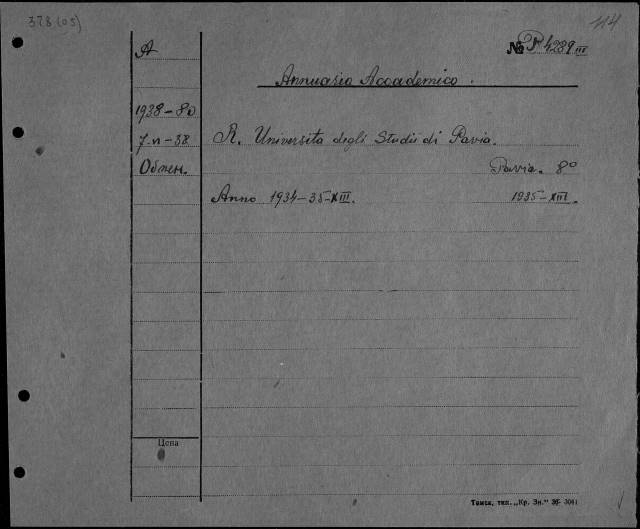 378(05)
114
А
№ P 4289 III
Annuario Accademico.
1938-80
7-VI-38 R. Universita degli Studii di Pavia.
Обмен. Pavia. 8°
Anno 1934-35-XIII. 1935-XIII.
Цена
Томск, тип. „Кр. Зн."